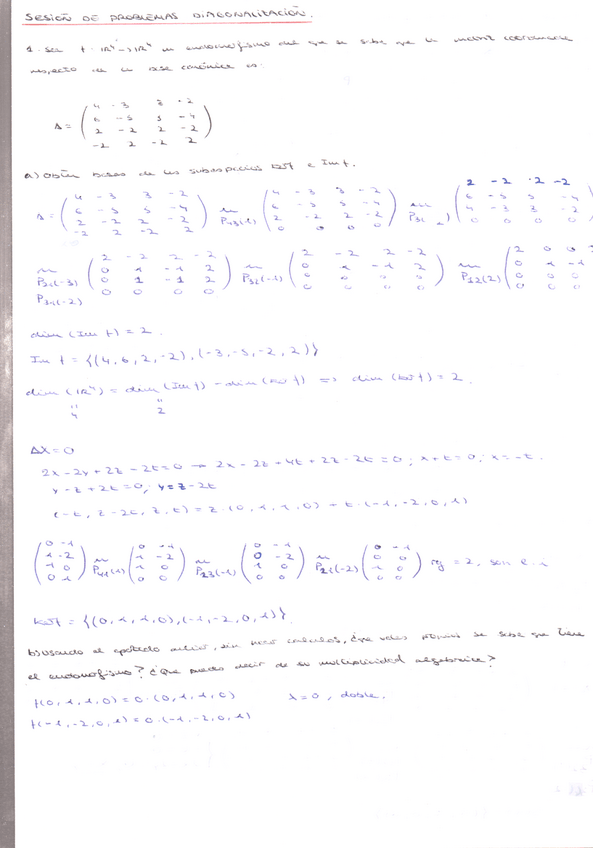 SESIÓN DE PROBLEMAS DIAGONALITACIÓN.
1. Sea f: IR⁴→IR⁴ un endomorfismo del que se sabe que la matriz coordenada
respecto de la base canónica es:
4 -3 3 -2
6 -5 5 -4
A = 2 -2 2 -2
-2 2 -2 2
a) Obtén bases de los subespacios Kerf e Imf.
A = (4 -3 3 -2; 6 -5 5 -4; 2 -2 2 -2; -2 2 -2 2) ~ P43(1) (4 -3 3 -2; 6 -5 5 -4; 2 -2 2 -2; 0 0 0 0) ~ (2 -2 2 -2; 6 -5 5 -4; 4 -3 3 -2; 0 0 0 0)
~ P21(-3) P31(-2) (2 -2 2 -2; 0 1 -1 2; 0 1 -1 2; 0 0 0 0) ~ P32(-1) (2 -2 2 -2; 0 1 -1 2; 0 0 0 0; 0 0 0 0) ~ P12(2)
dim (Im f) = 2.
Im f = {(4, 6, 2, -2), (-3, -5, -2, 2)}
dim (IR⁴) = dim (Im f) - dim (Ker f) => dim (Ker f) = 2.
4 2
AX=0
2x-2y+2z-2t=0 → 2x-2z+4t+2z-2t=0; x+t=0; x=-t.
y-z+2t=0; y=z-2t
(-t, z-2t, z, t) = z·(0, 1, 1, 0) + t·(-1, -2, 0, 1)
(0 -1; 1 -2; 1 0; 0 1) ~ P41(1) (0 -1; 1 -2; 1 0; 0 0) ~ P23(-1) (0 -1; 0 -2; 1 0; 0 0) ~ P21(-2) (0 -1; 0 0; 1 0; 0 0) rg = 2, son
Kerf = {(0, 1, 1, 0), (-1, -2, 0, 1)}.
b) Usando el apartado anterior, sin hacer cálculos, ¿que valor propio se sabe que tiene
el endomorfismo? ¿Que puedes decir de su multiplicidad algebraica?
f(0, 1, 1, 0) = 0·(0, 1, 1, 0) λ=0, doble.
f(-1, -2, 0, 1) = 0·(-1, -2, 0, 1)